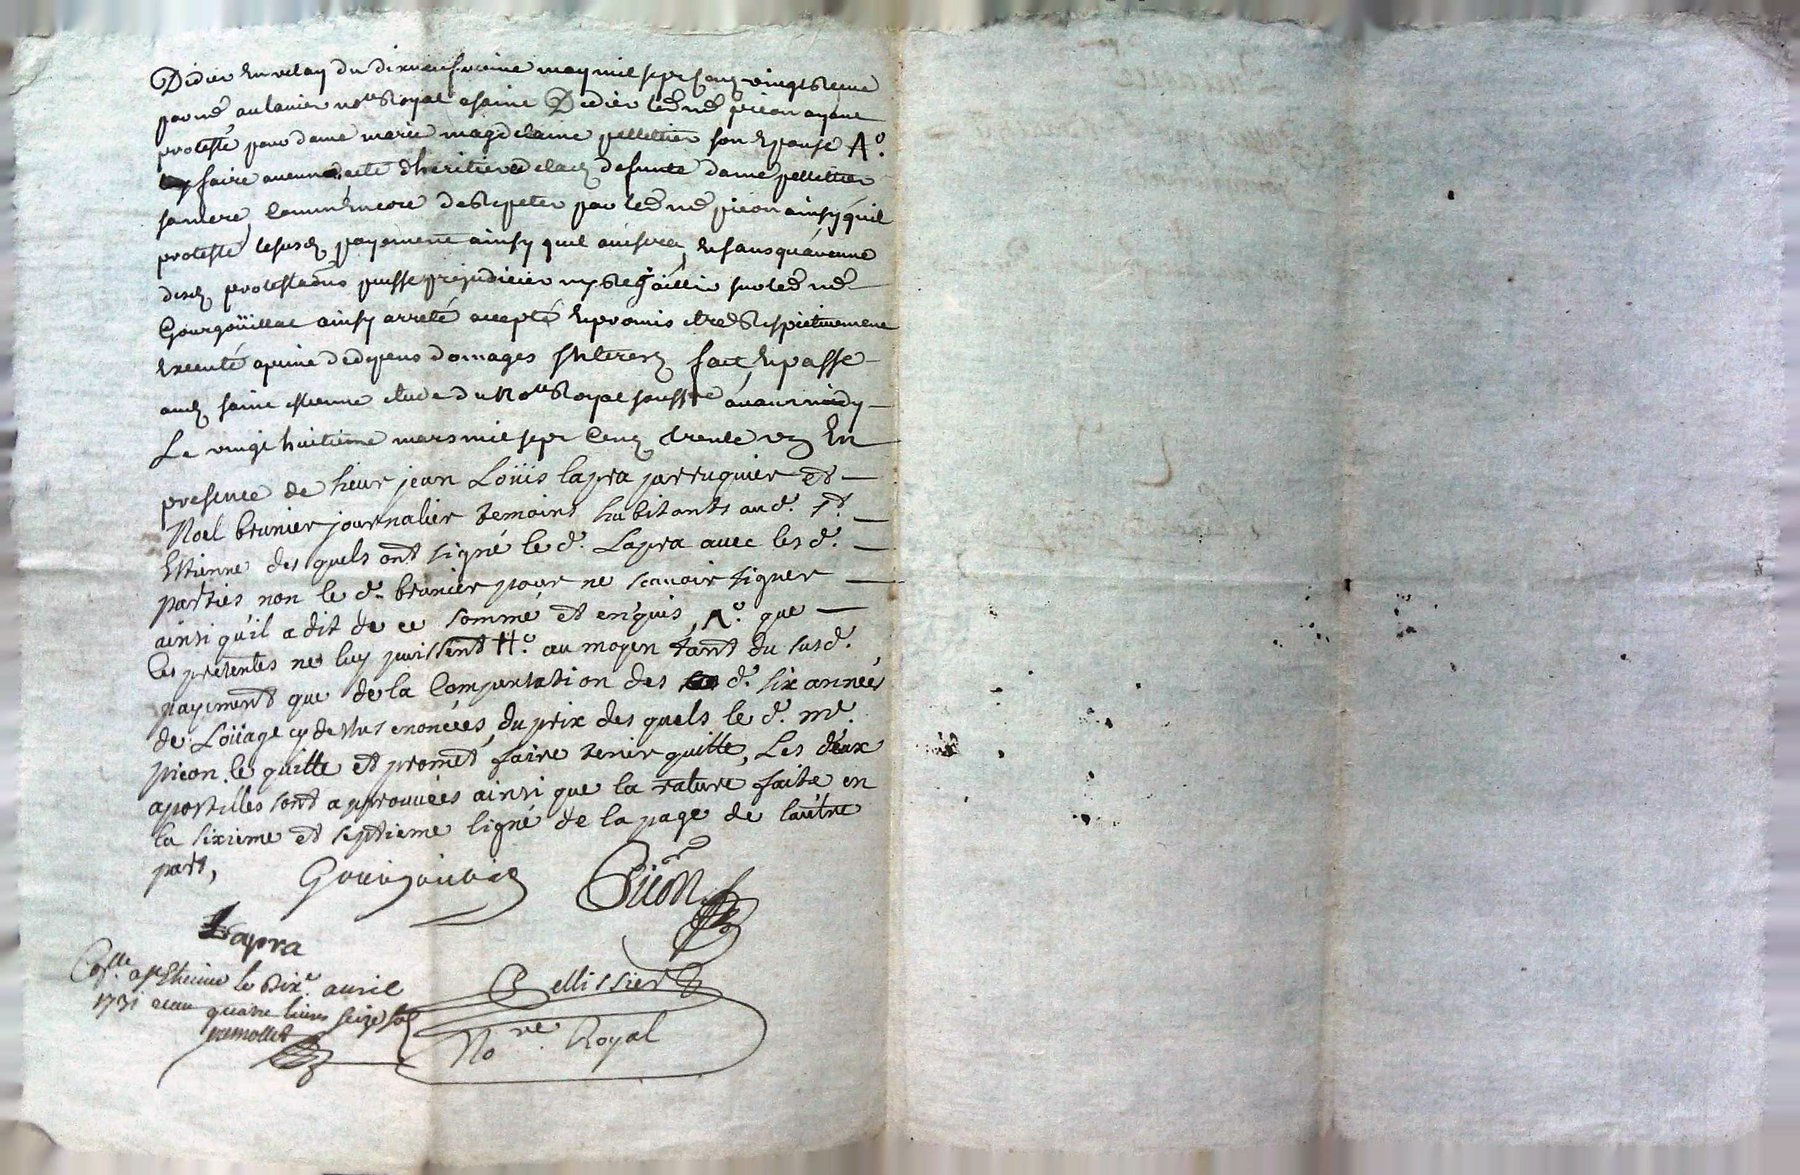 Didier en velay du dixneufvieme may mil sept cens vingt & cinq
par me aulanier nore Royal a saint Didier led me picon ayant
protesté pour dame marie magdelaine pellettier son Epouse A°.
faire aucun acte d'heritiere de lad defunte dame pellettier
sa mere, comm'Encore de Repeter par led me picon ainsy qu'il
proteste lesusd payement ainsy quil avisera, En sans qu'aucune
desd protestaons puisse prejudicier ny Rejaillir sur led me
Gourgoüillat ainsy arreté accepté En promis etre Respectivement
Executé a peine de depens domages Interets fait En passé
aud saint etienne etude du Nore Royal soussé avant midy
Le vingt huitieme mars mil sept Cens trente un En
presence de sieur jean Loüis lapra perruquier et
Noel brunier journalier temoins habitants aud. St.
Etienne des quels ont signé le d. Lapra avec les d.
parties non le d. brunier pour ne scavoir signer
ainsi qu'il a dit de ce sommé et enquis, A°. que
Ces presentes ne luy puissent H°. au moyen tant du susd.
payement que de la Compensation des d. six années
de Loüage cy dessus enoncées, du prix des quels le d. me.
picon le quitte et promet faire tenir quitte, Les deux
apostilles sont approuvées ainsi que la rature faite en
la sixieme et septieme ligne de la page de lautre
part,
Picon
Lapra
Collé a st Etienne le dixe avril
1731 quatre livres seize sols
Pellissier
Nore Royal